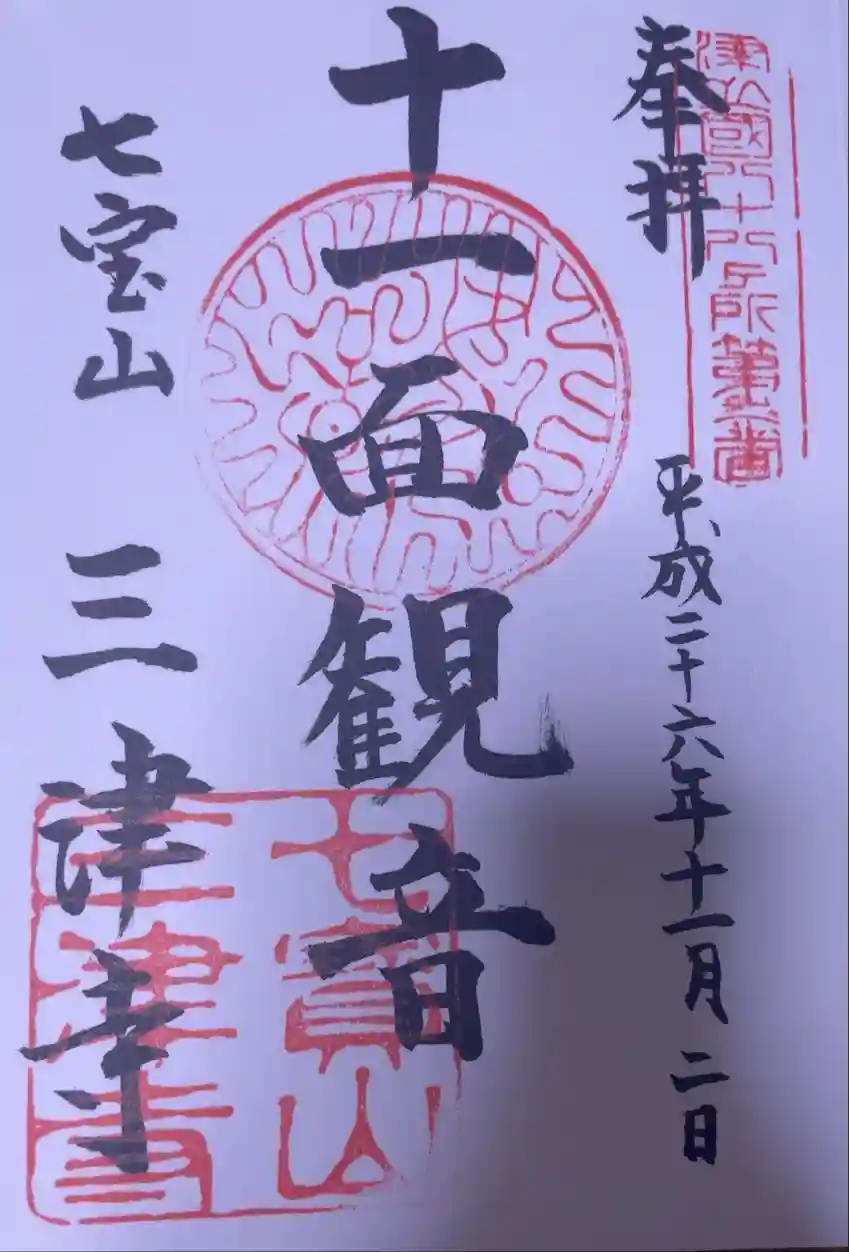 奉拝
國八十八所第二番
平成二十六年十一月二日
十一面観音
七宝山 三津寺
七寳山
三津寺